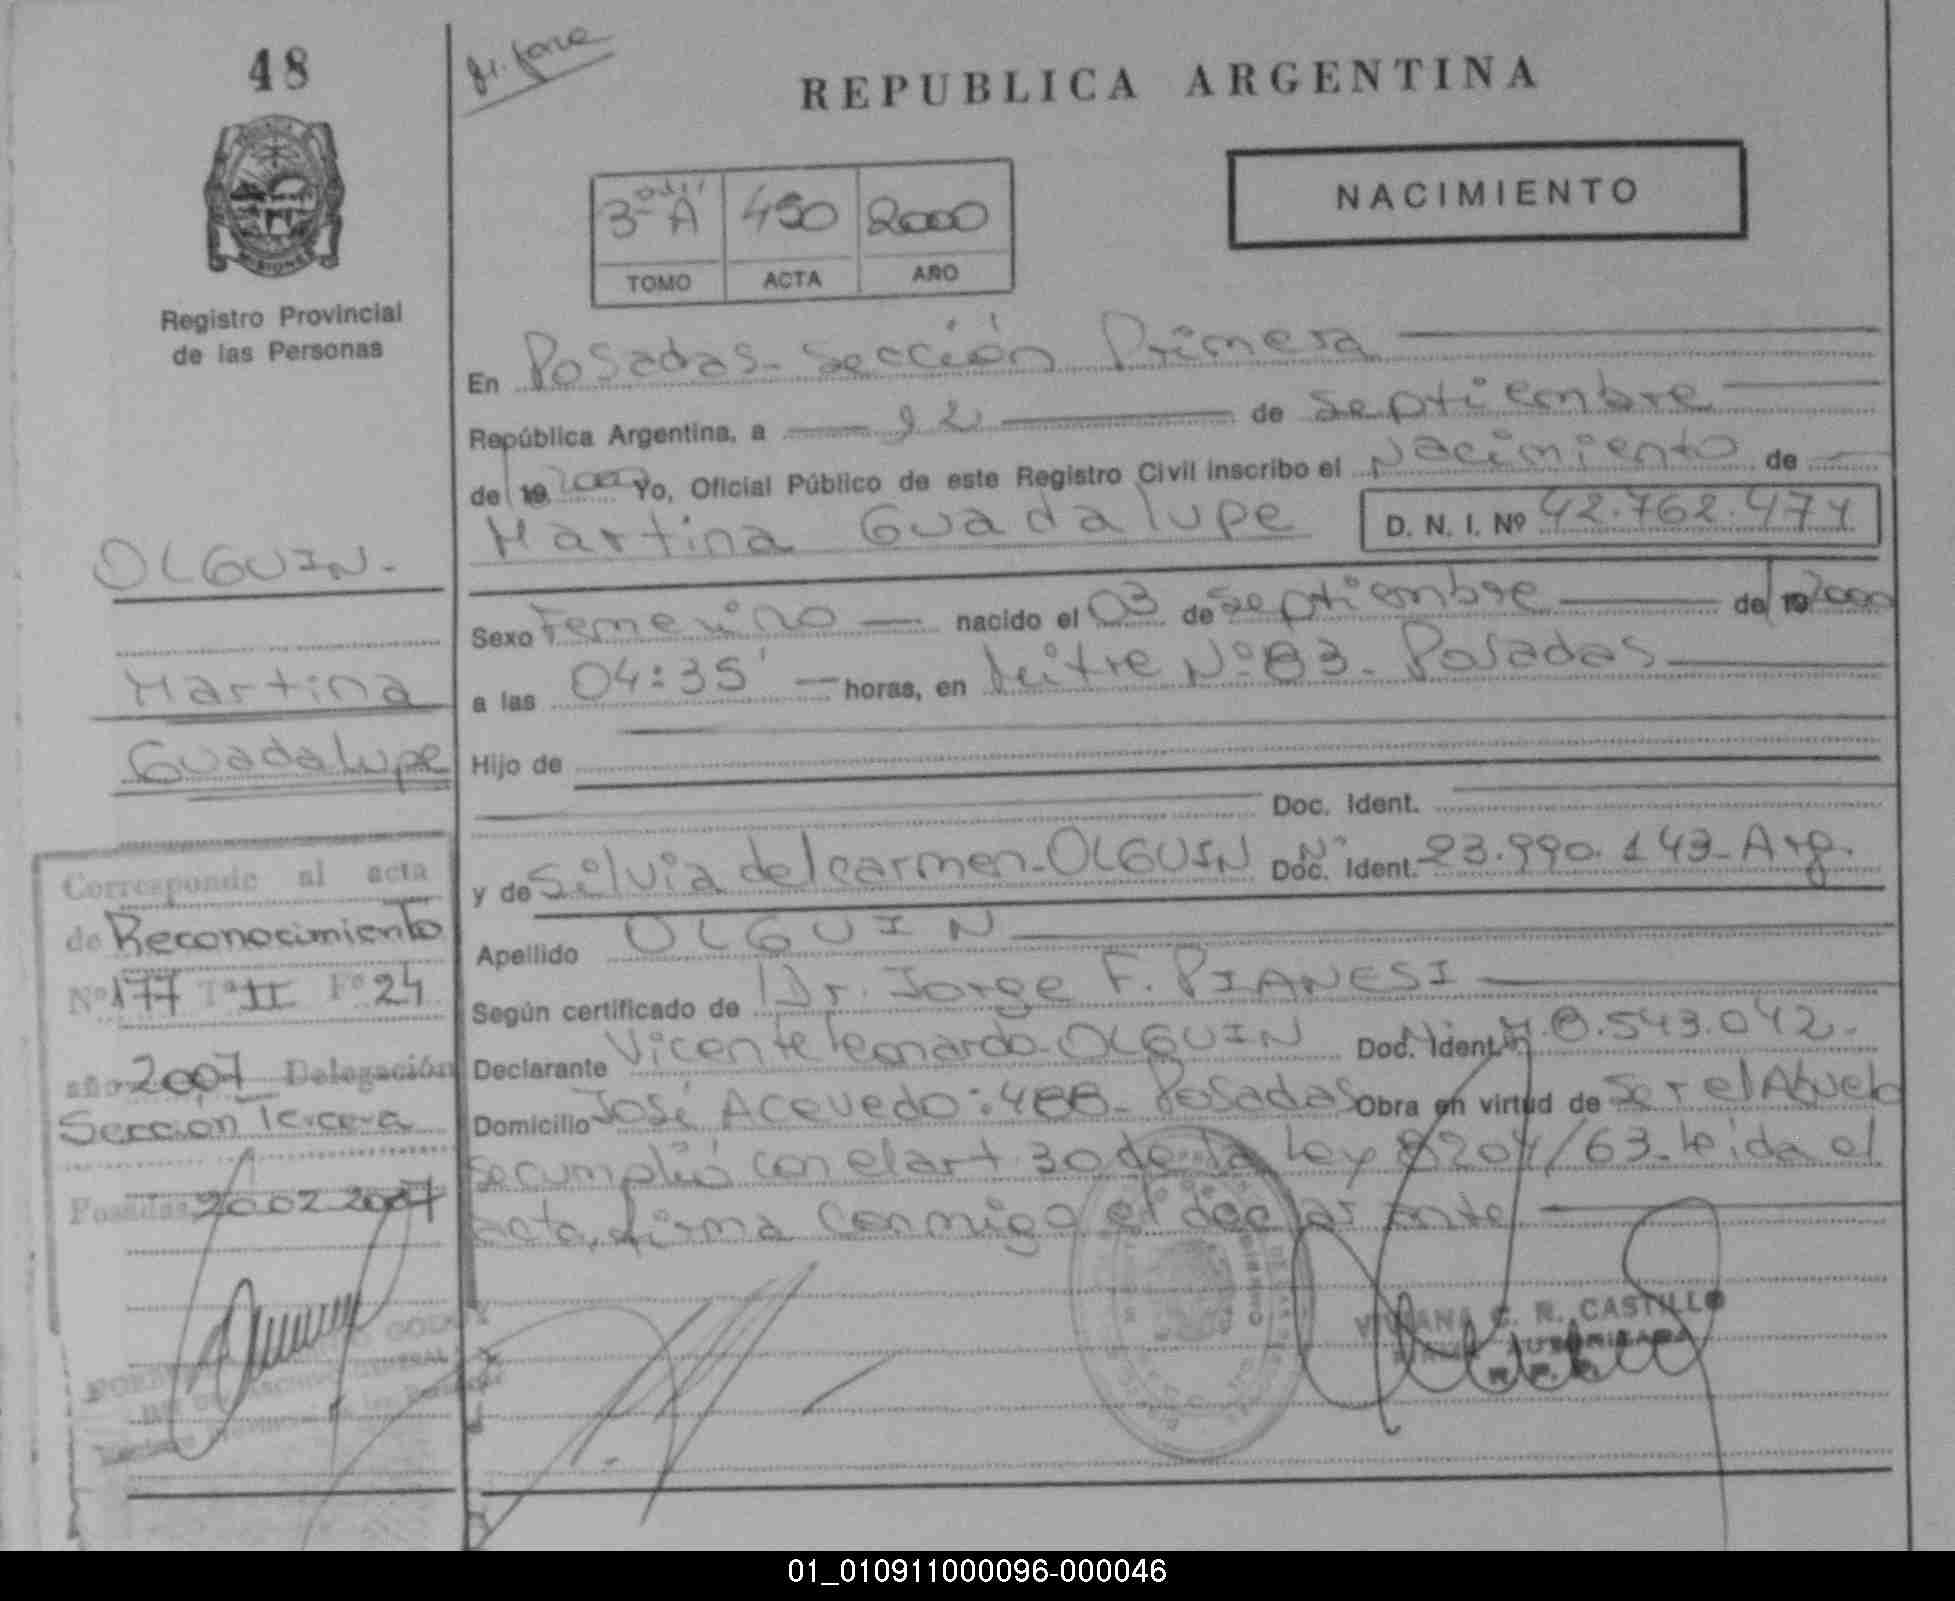 48
REPUBLICA ARGENTINA
3º A 450 2000
TOMO ACTA AÑO
NACIMIENTO
MISIONES
Registro Provincial
de las Personas
En Posadas - Sección Primera
República Argentina, a 12 de Septiembre
de 19 2000 Yo, Oficial Público de este Registro Civil inscribo el Nacimiento de
Martina Guadalupe D. N. I. Nº 42.762.474
Sexo Femenino nacido el 03 de Septiembre de 19 2000
a las 04:35' horas, en Mitre Nº 83 - Posadas
Hijo de
Doc. Ident.
y de Silvia del carmen - OLGUIN Doc. Nº Ident. 23.990.143 - Arg.
Apellido OLGUIN
Según certificado de Dr. Jorge F. PIANESI
Declarante Vicente Leonardo - OLGUIN Doc. Ident. M. 8.543.042 -
Domicilio José Acevedo: 488 - Posadas Obra en virtud de Ser el Abuelo
se cumplió con el art 30 de la Ley 8204/63 - leida el
acta, firma conmigo el declarante
C. R. CASTILLO
AUTORIZADA
R. P. P.
OLGUIN -
Martina
Guadalupe
Corresponde al acta
de Reconocimiento
Nº 177 Tº II Fº 24
año 2007 Delegación
Sección Tercera
Posadas, 20.02.2007
01_010911000096-000046